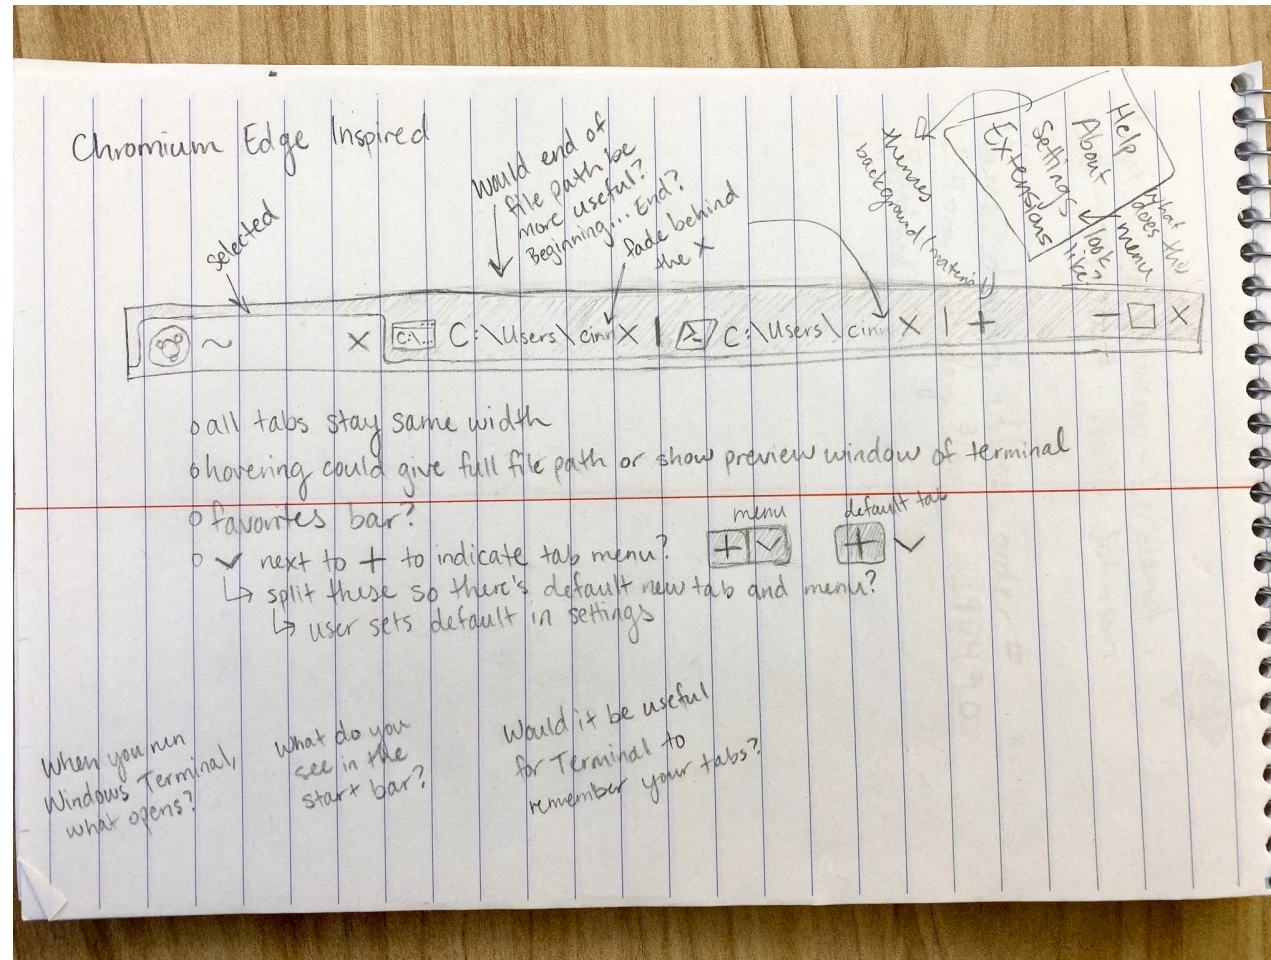 Chromium Edge Inspired
selected
Would end of
file path be
more useful?
Beginning... End?
fade behind
the X
themes
background (material)
Help
About
Settings
Extensions
what
does this
menu
look
like?
~ X C:\... C:\Users\cinn X | >_ C:\Users\cinn X | + — □ X
o all tabs stay same width
o hovering could give full file path or show preview window of terminal
o favorites bar?
menu
default tab
o ∨ next to + to indicate tab menu? + ∨ + ∨
↳ split these so there's default new tab and menu?
↳ user sets default in settings
When you run
Windows Terminal,
what opens?
What do you
see in the
start bar?
Would it be useful
for Terminal to
remember your tabs?